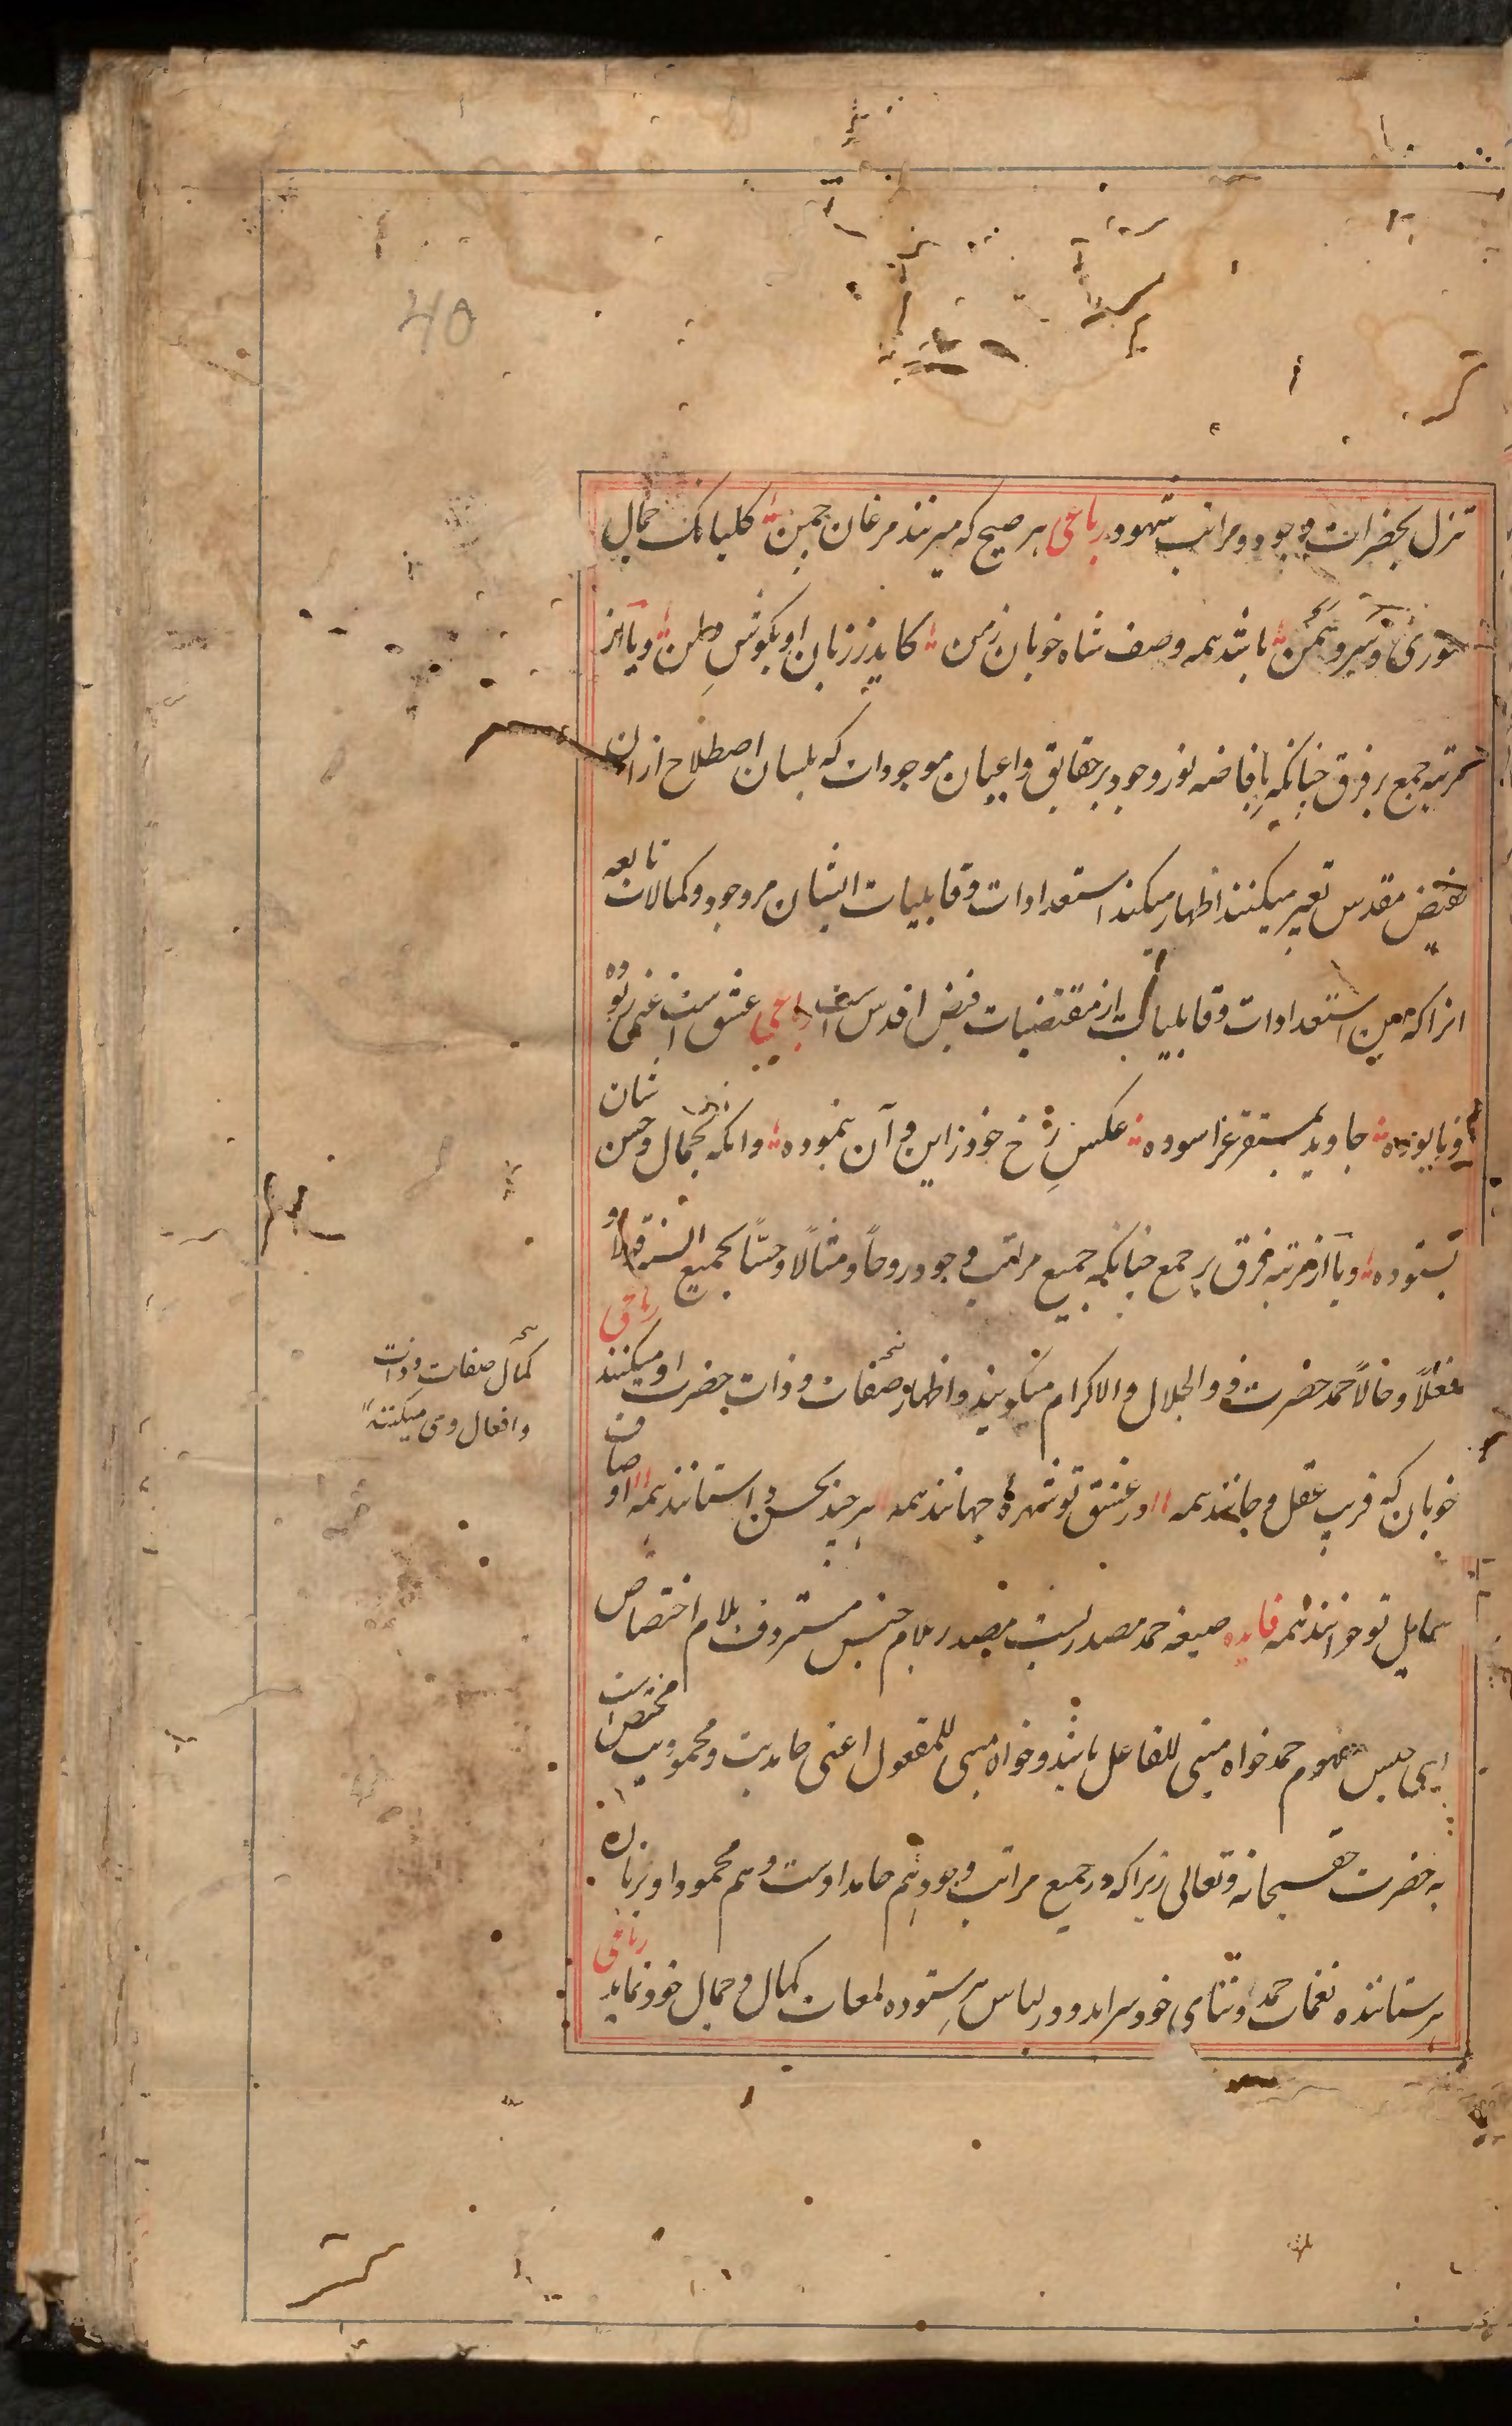 40
تنزل بحضرات وجود و مراتب شهود رباعی هر صبح که میزنند مرغان چمن کلبانک جمال
سوری و سرو سمن باشد همه وصف شاه خوبان زمن کاید ز زبان او بکوش من و یا از
مرتبه جمع بر فرق چنانکه بافاضه نور وجود بر حقایق و اعیان موجودات که بلسان اصطلاح ازان
بفیض مقدس تعبیر میکنند اظهار میکند استعدادات و قابلیات ایشان مر وجود و کمالات تابعه
انرا که معین استعدادات و قابلیات از مقتضیات فیض اقدس است رباعی عشق است غنی ز بوده
و نابوده جاوید بمستقر عز اسوده عکس رخ خود ز این و آن بنموده وانکه بجمال و حسن شان
بستوده و یا از مرتبه فرق بر جمع چنانکه جمیع مراتب وجود روحاً و مثالاً و حسّاً بجمیع السنه قولاً و
فعلاً و حالاً حمد حضرت ذو الجلال و الاکرام میکویند و اظهار صفات و ذات حضرت او میکنند رباعی
کمال صفات و ذات
و افعال وی میکنند
خوبان که فریب عقل و جانند همه در عشق تو شهرهٔ جهانند همه هر چند بحسن داستانند همه اوصاف
شمایل تو خوانند همه فایده صیغه حمد مصدریست مصدر بلام جنس مستردف بلام اختصاص
یعنی جنس مفهوم حمد خواه مبنی للفاعل باشد و خواه مبنی للمفعول اعنی حامدیت و محمودیت مختص است
به حضرت حق سبحانه و تعالی زیرا که در جمیع مراتب وجود هم حامد اوست و هم محمود او بزبان
هر ستاننده نغمات حمد و ثنای خود سراید و در لباس هر ستوده لمعات کمال و جمال خود نماید رباعی